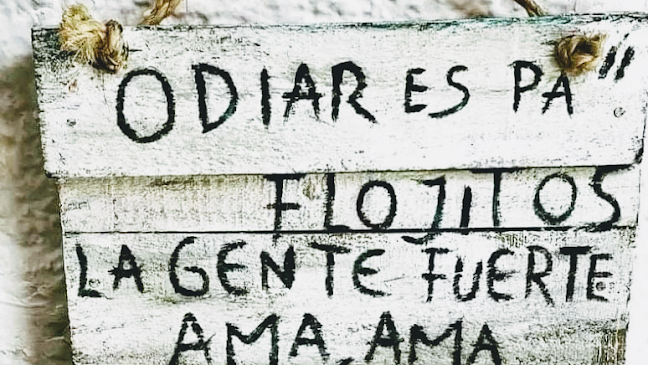 ODIAR ES PA"
FLOJITOS
LA GENTE FUERTE
AMA, AMA